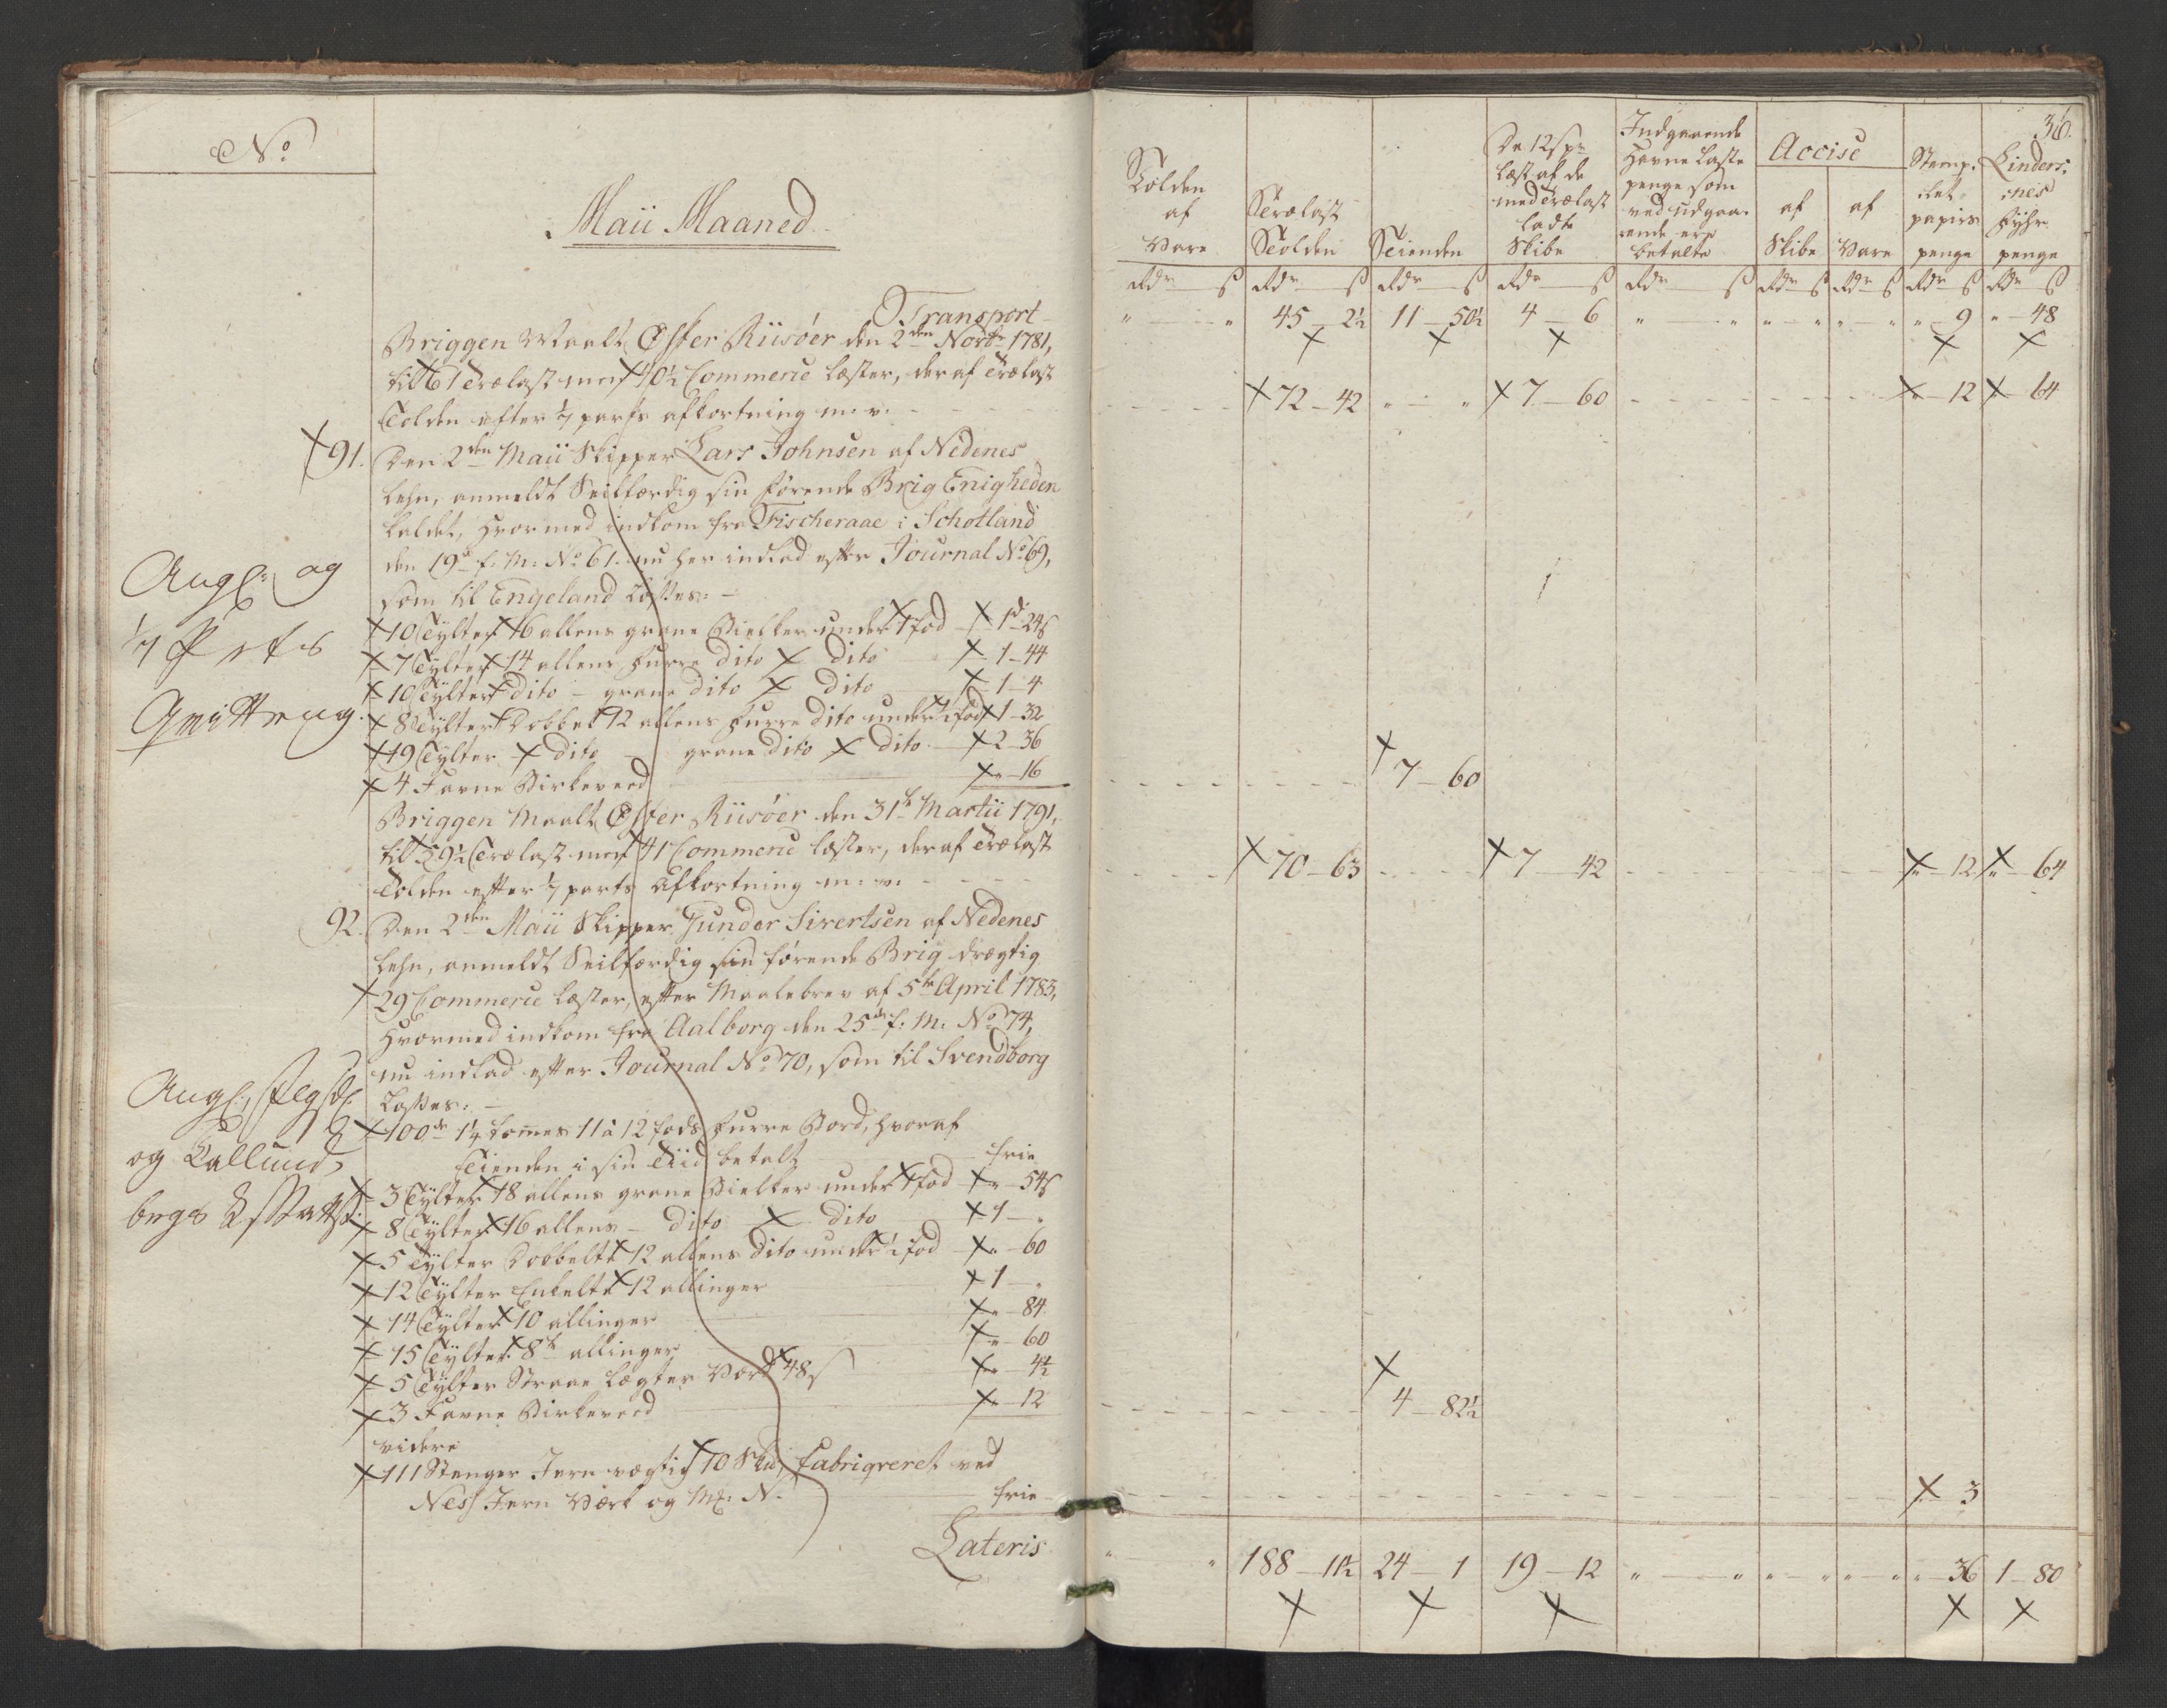 No
Maii Maaned
Transport
Briggen Maalt Øster Riisöer den 2den Novbr 1781,
til 61 Trælast men 40½ Commerce læster, der af Trælast
Tolden efter 1/7 parts afkortning m: v:
91. Den 2den Maii Skipper Lars Johnsen af Nedenes
Lehn, anmeldt Seilfærdig sin förende Brig Enigheden
kaldet, hvormed indkom fra Fischeraae i Schotland
den 19de f: M: No 61. nu her indlad efter Journal No 69,
som til Engeland losses:
Angl: og
1/7 Parts
Qvittering
10 Tylter 16 allens grane Bielker under 1 fod 1d 24s
7 Tylter 14 allens furre dito dito 1-44
10 Tylter dito - grane dito dito 1-4
8 Tylter Dobbelt 12 allens furre dito under ½ fod 1-32
19 Tylter dito - grane dito dito 2-36
4 Favne Birkeveed " 16
7-60
Briggen Maalt Øster Riisöer den 31te Martii 1791,
til 59½ Trælast men 41 Commerce læster, der af Trælast
Tolden efter 1/7 parts Afkortning m: v:
92. Den 2den Maii Skipper Gunder Sivertsen af Nedenes
Lehn, anmeldt Seilfærdig sin förende Brig drægtig
29 Commerce læster, efter Maalebrev af 5te April 1783,
hvormed indkom fra Aalborg den 25de f: M: No 74,
nu indlad efter Journal No 70, som til Svendborg
losses:
Angl:
og Callund
borgs
100de 1¼ tomes 11 à 12 fods furre Bord, hvoraf
Tienden i sin Tiid betalt frie
3 Tylter 18 allens grane Bielker under 1 fod " 54s
8 Tylter 16 allens - dito dito 1 - "
5 Tylter Dobbelt 12 allens dito under ½ fod " 60
12 Tylter Enkelt 12 allinger 1 - "
14 Tylter 10 allinger " 84
15 Tylter 8te allinger " 60
5 Tylter Straae Lægter Værd 48s " 4½
3 Favne Birkeveed " 12
videre
111 Stenger Jern vægtig 10 Sk℔, fabriqveret ved
Ness Jern Værk og Mk: N. frie
Lateris
36.
Tolden af Vare
Trælast Tolden
Tienden
De 12s pr læst af de med Trælast ladte Skibe
Indgaaende Havne Laste penge som ved udgaaende ere betalte
Accise
af Skibe
af Vare
Stemp- let papirs penge
Linders- nes Fyhr penge
Rdr s Rdr s Rdr s Rdr s Rdr s Rdr s Rdr s Rdr s Rdr s
" " 45-2½ 11-50½ 4-6 " " " " " " " 9 " 48
72-42 " " 7-60 12 64
7-60
70-63 7-42 " 12 " 64
4-82½
3
" " 188-11½ 24-1 19-12 " " " " " " " 36 1-80